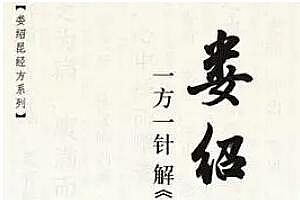 娄绍
一方一针解《
【娄绍昆经方系列】